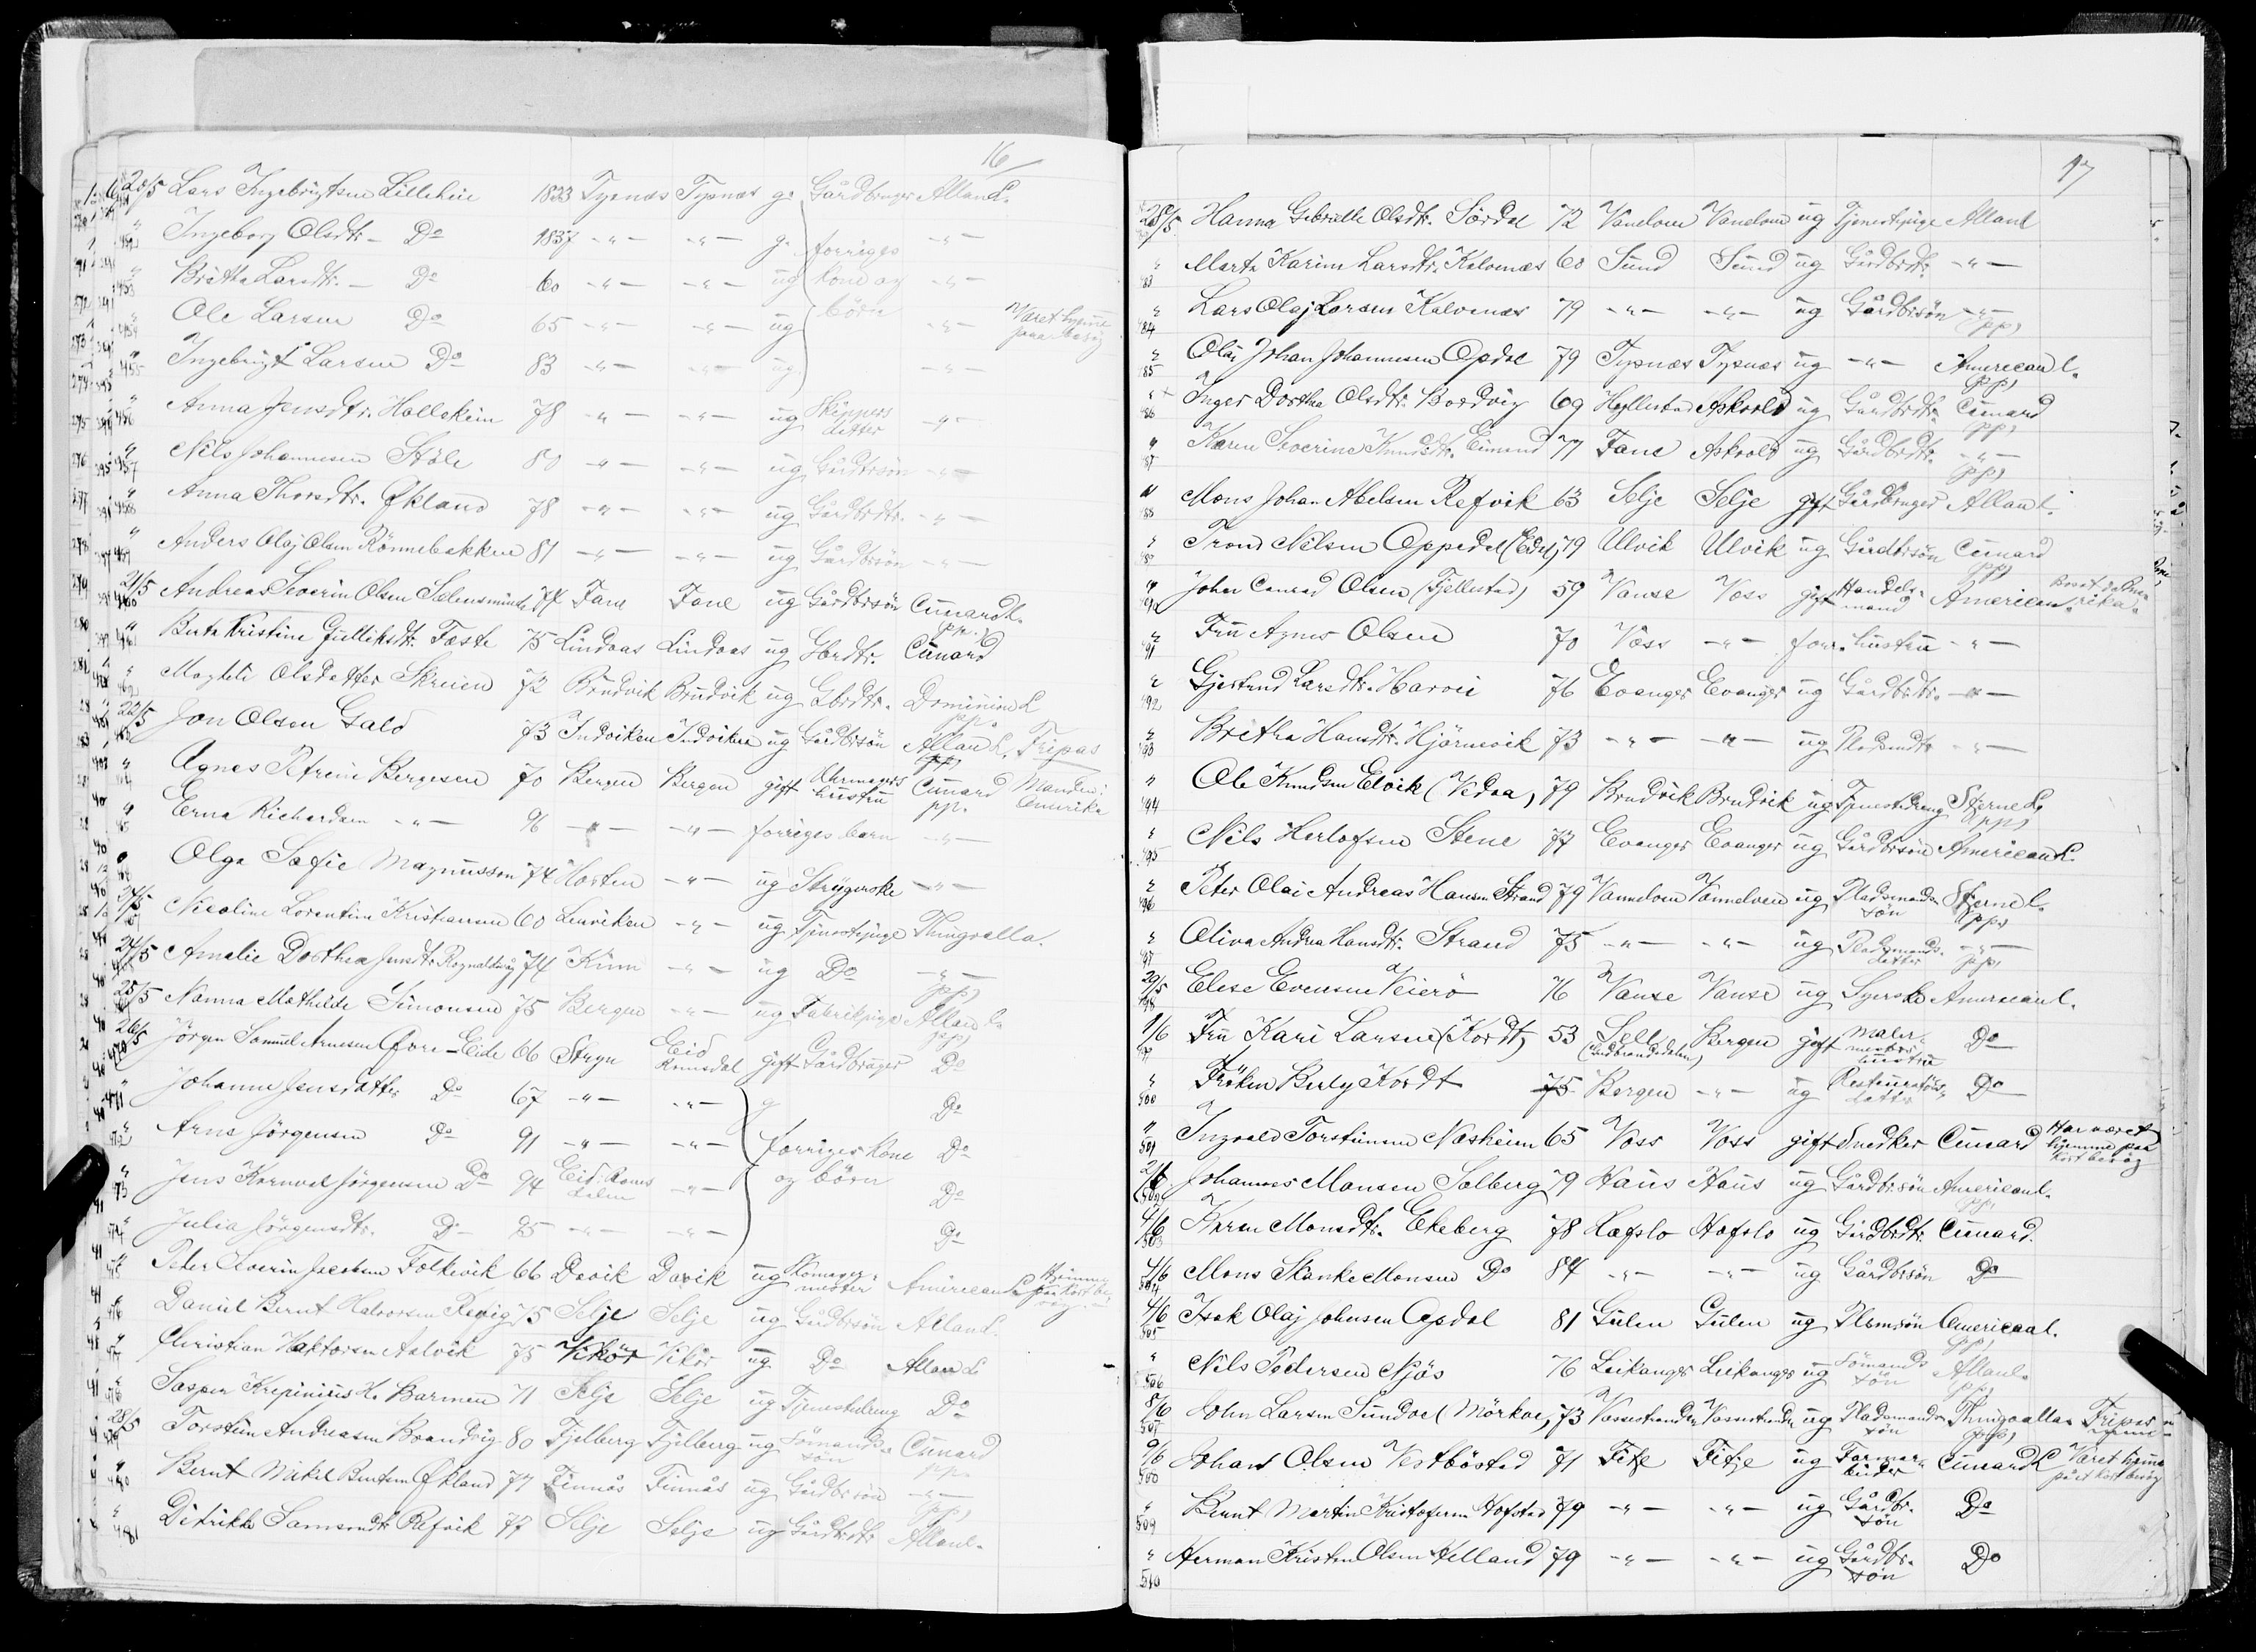 16
20/5 Lars Ingebrigtsen Lilleheie 1833 Tysnæs Tysnæs g. Gårdbruger Allan L.
" Ingeborg Olsdtr. Do 1837 -"- -"- g. forriges -"-
" Britha Larsdtr. Do 60 -"- -"- ug kone og -"-
" Ole Larsen Do 65 -"- -"- ug börn -"- Været hjeme paa besög
" Ingebrigt Larsen Do 83 -"- -"- ug -"-
" Anna Jensdtr. 78 -"- -"- ug Skippers datter -"-
" Nils Johannesen Stöle 80 -"- -"- ug Gårdbrsön -"-
" Anna Thorsdtr. Økland 78 -"- -"- ug Gårdbrdtr. -"-
" Anders Olaj Olsen Rönnebakken 81 -"- -"- ug Gårdbrsön -"-
21/5 Andreas Severin Olsen 74 Fane Fane ug Gårdbrsön Cunard L. pp.
" Berta Kristine Gulliksdtr. Foste 75 Lindaas Lindaas ug Gbrdtr. Cunard
" Magteli Olsdatter Skreien 72 Brudvik Brudvik ug Gbrdtr. Dominion L pp.
22/5 Jon Olsen Gald 73 Indviken Indviken ug Gårdbrsön Allan L. pp) Fripas
" Agnes Petrine Bergesen 70 Bergen Bergen gift Uhrmagers hustru Cunard pp. Manden i Amerika
" Erna Richardsen -"- 96 -"- -"- forriges barn -"-
" Olga Sofie Magnusson 74 Horten -"- ug Strygerske -"-
24/5 Nicoline Lorentine Kristiansen 60 Lerviken -"- ug Tjenestepige Thingvalla.
24/5 Amalie Dorthea Jensdtr. Rognaldsvåg 74 Kinn -"- ug Do -"- pp)
25/5 Nanna Mathilde Simonsen 75 Bergen -"- ug Fabrikpige Allan L. pp)
26/5 Jörgen Samuel Arnesen Övre-Eide 66 Stryn Eid Romsdal gift Gårdbruger Do
" Johanne Jensdatter Do 67 -"- -"- g Do
" Arne Jörgensen Do 91 -"- -"- forriges kone Do
" Jens Kornvel Jörgensen Do 94 Eid. Romsdalen -"- og börn Do
" Julia Jörgensdtr. Do 95 -"- -"- Do
" Peter Severin Jacobsen Folkevik 66 Davik Davik ug Skomagermester American L Hjemme paa kort besög
" Daniel Bernt Halvorsen Revig 75 Selje Selje ug Gårdbrsön Allan L
" Christian Haktorsen Aalvik 75 Vikör Vikör ug Do Allan L
" Kaspar Krepinius H. Barmen 71 Selje Selje ug Tjenestedreng Do
28/5 Torstein Andreasen Brandvig 80 Fjelberg Fjelberg ug Sömands sön Cunard pp.
" Bernt Mikal Berntsen Økland 77 Finnås Finnås ug Gårdbrsön -"- pp)
" Ditrikke Samsondtr. Refvik 77 Selje Selje ug Gårdbrdtr. Allan L.
17
28/5 Hanna Gebrielle Olsdtr. Sördal 72 Vanelven Vanelven ug Tjenestepige Allan L
" Marta Karine Larsdtr. Kalvenæs 60 Sund Sund ug Gårdbrdtr. -"-
" Lars Olaj Larsen Kalvenæs 79 -"- -"- ug Gårdbrsön -"- pp)
" Olai Johan Johannesen Opdal 79 Tysnæs Tysnæs ug -"- American L. pp)
" Inger Dorthea Olsdtr. Bordvig 69 Hyllestad Askvold ug Gårdbrdtr. Cunard pp)
" Karen Severine Knudsdtr. Eimind 77 Fane Askvold ug Gårdbrdtr. -"- pp)
" Mons Johan Abelsen Refvik 63 Selje Selje gift Gårdbruger Allan L.
" Trond Nilsen Oppedal (Eide) 79 Ulvik Ulvik ug Gårdbrsön Cunard pp)
" John Conrad Olsen (Fjellestad) 59 Vanse Voss gift Handelsmand American L. Bosat i Amerika
" Fru Agnes Olsen 70 Voss -"- forr. hustru -"-
" Gjertrud Larsdtr. Horvei 76 Evanger Evanger ug Gårdbrdtr. -"-
" Britha Hansdtr. Hjörnevik 73 -"- -"- ug Pladsmdtr -"-
" Ole Knudsen Elvik (Vedaa) 79 Brudvik Brudvik ug Tjenestedreng Stjerne L. pp)
" Nils Herlofsen Stene 77 Evanger Evanger ug Gårdbrsön American L.
" Peter Olai Andreas Hansen Strand 79 Vannelven Vannelven ug Pladsmands sön Stjerne L. pp)
" Oliva Andrea Hansdtr. Strand 75 -"- -"- ug Pladsmands datter -"- pp)
29/5 Elese Evensen Veierö 76 Vanse Vanse ug Syerske American L.
1/6 Fru Kari Larsen (Kordt) 53 Sell (Gudbrandsdalen) Bergen gift Malermesters hustru Do
" Fröken Berly Kordt 75 Bergen -"- ug Restauratörs datter Do
" Ingvald Torsteinsen Næsheim 65 Voss Voss gift Snedker Cunard Har været hjemme paa kort besög
2/6 Johannes Monsen Solberg 79 Haus Haus ug Gårdbrsön American L. pp.
4/6 Karen Monsdtr. Ekeberg 78 Hafslo Hafslo ug Gårdbrdtr. Cunard.
4/6 Mons Skanke Monsen Do 84 -"- -"- ug Gårdbrsön Do
4/6 Isak Olaj Johnsen Opdal 81 Gulen Gulen ug Plsmsön American L. pp)
" Nils Pedersen Njös 76 Leikanger Leikanger ug Sömands sön Allan L. pp)
8/6 John Larsen Sundve (Mörkve) 73 Vossestranden Vossestranden ug Pladsmands sön Thingvalla pp) Fripas
9/6 Johan Olsen Vestböstad 71 Fitje Fitje ug Farmarbeider Cunard L Været hjeme på et kort besög
" Bernt Martin Kristofersen Hofstad 79 -"- -"- ug Gårdbr. sön Do
" Herman Kristen Olsen Helland 79 -"- -"- ug Gårdbr. sön Do